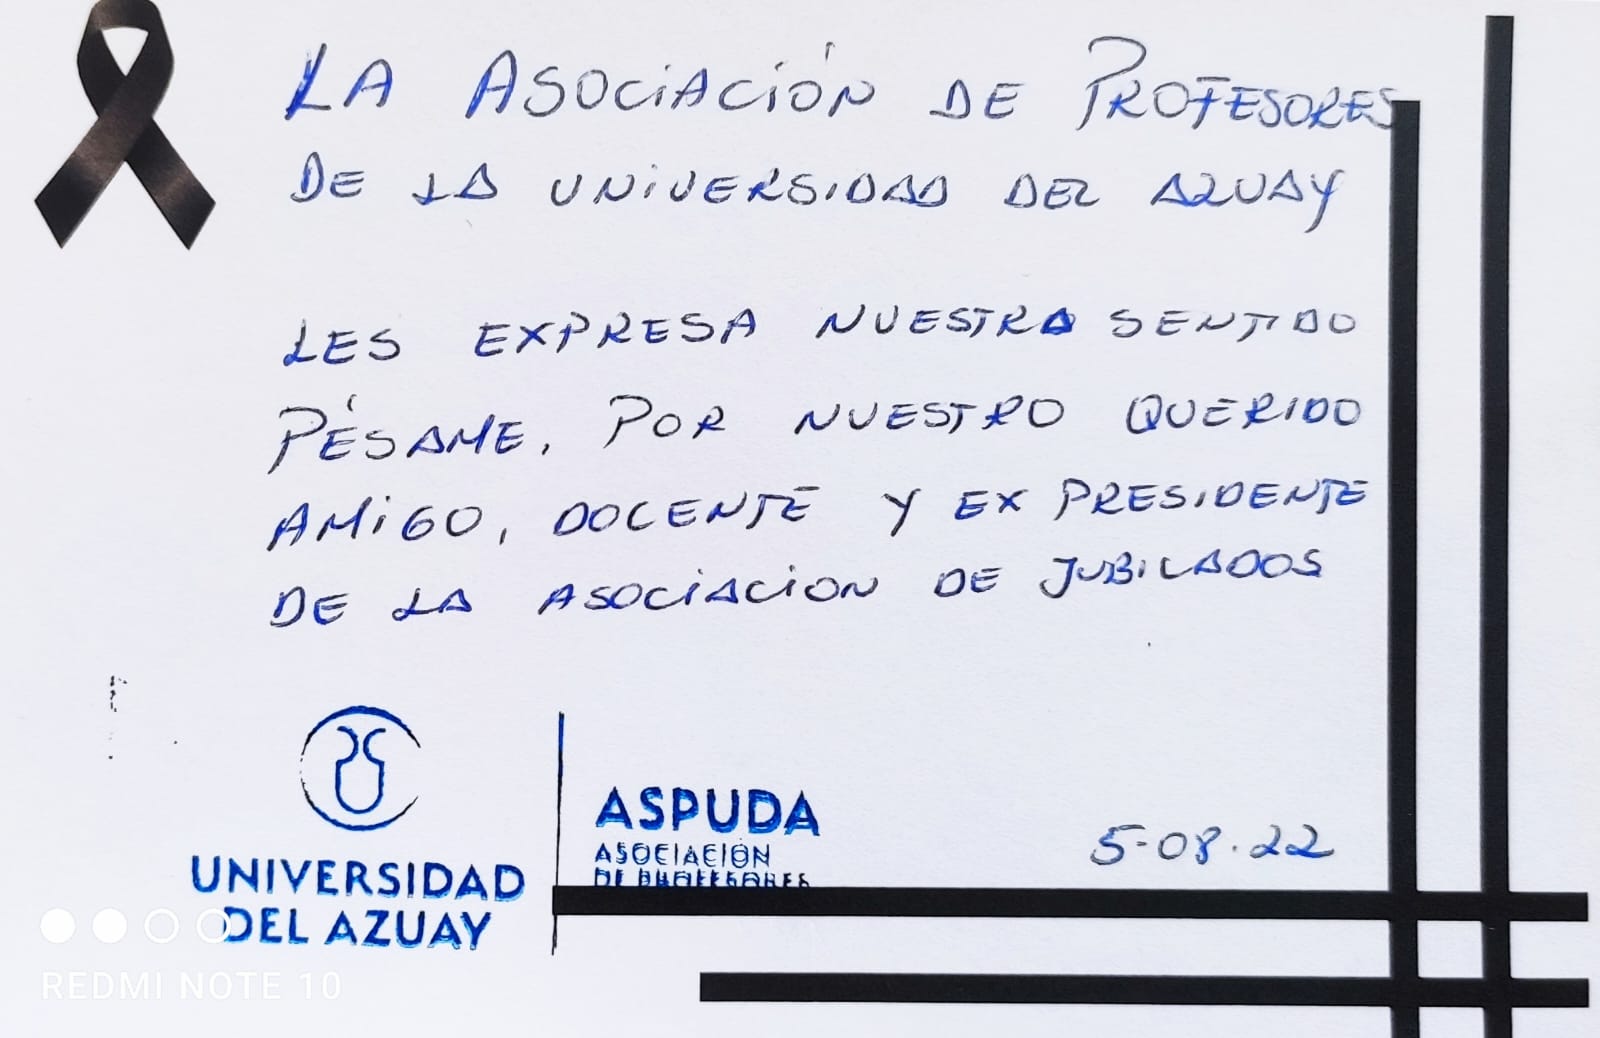 LA ASOCIACIÓN DE PROFESORES
DE LA UNIVERSIDAD DEL AZUAY
LES EXPRESA NUESTRA SENTIDO
PÉSAME, POR NUESTRO QUERIDO
AMIGO, DOCENTE Y EX PRESIDENTE
DE LA ASOCIACION DE JUBILADOS
UNIVERSIDAD
DEL AZUAY
ASPUDA
ASOCIACIÓN
DE PROFESORES
5-08.22
REDMI NOTE 10